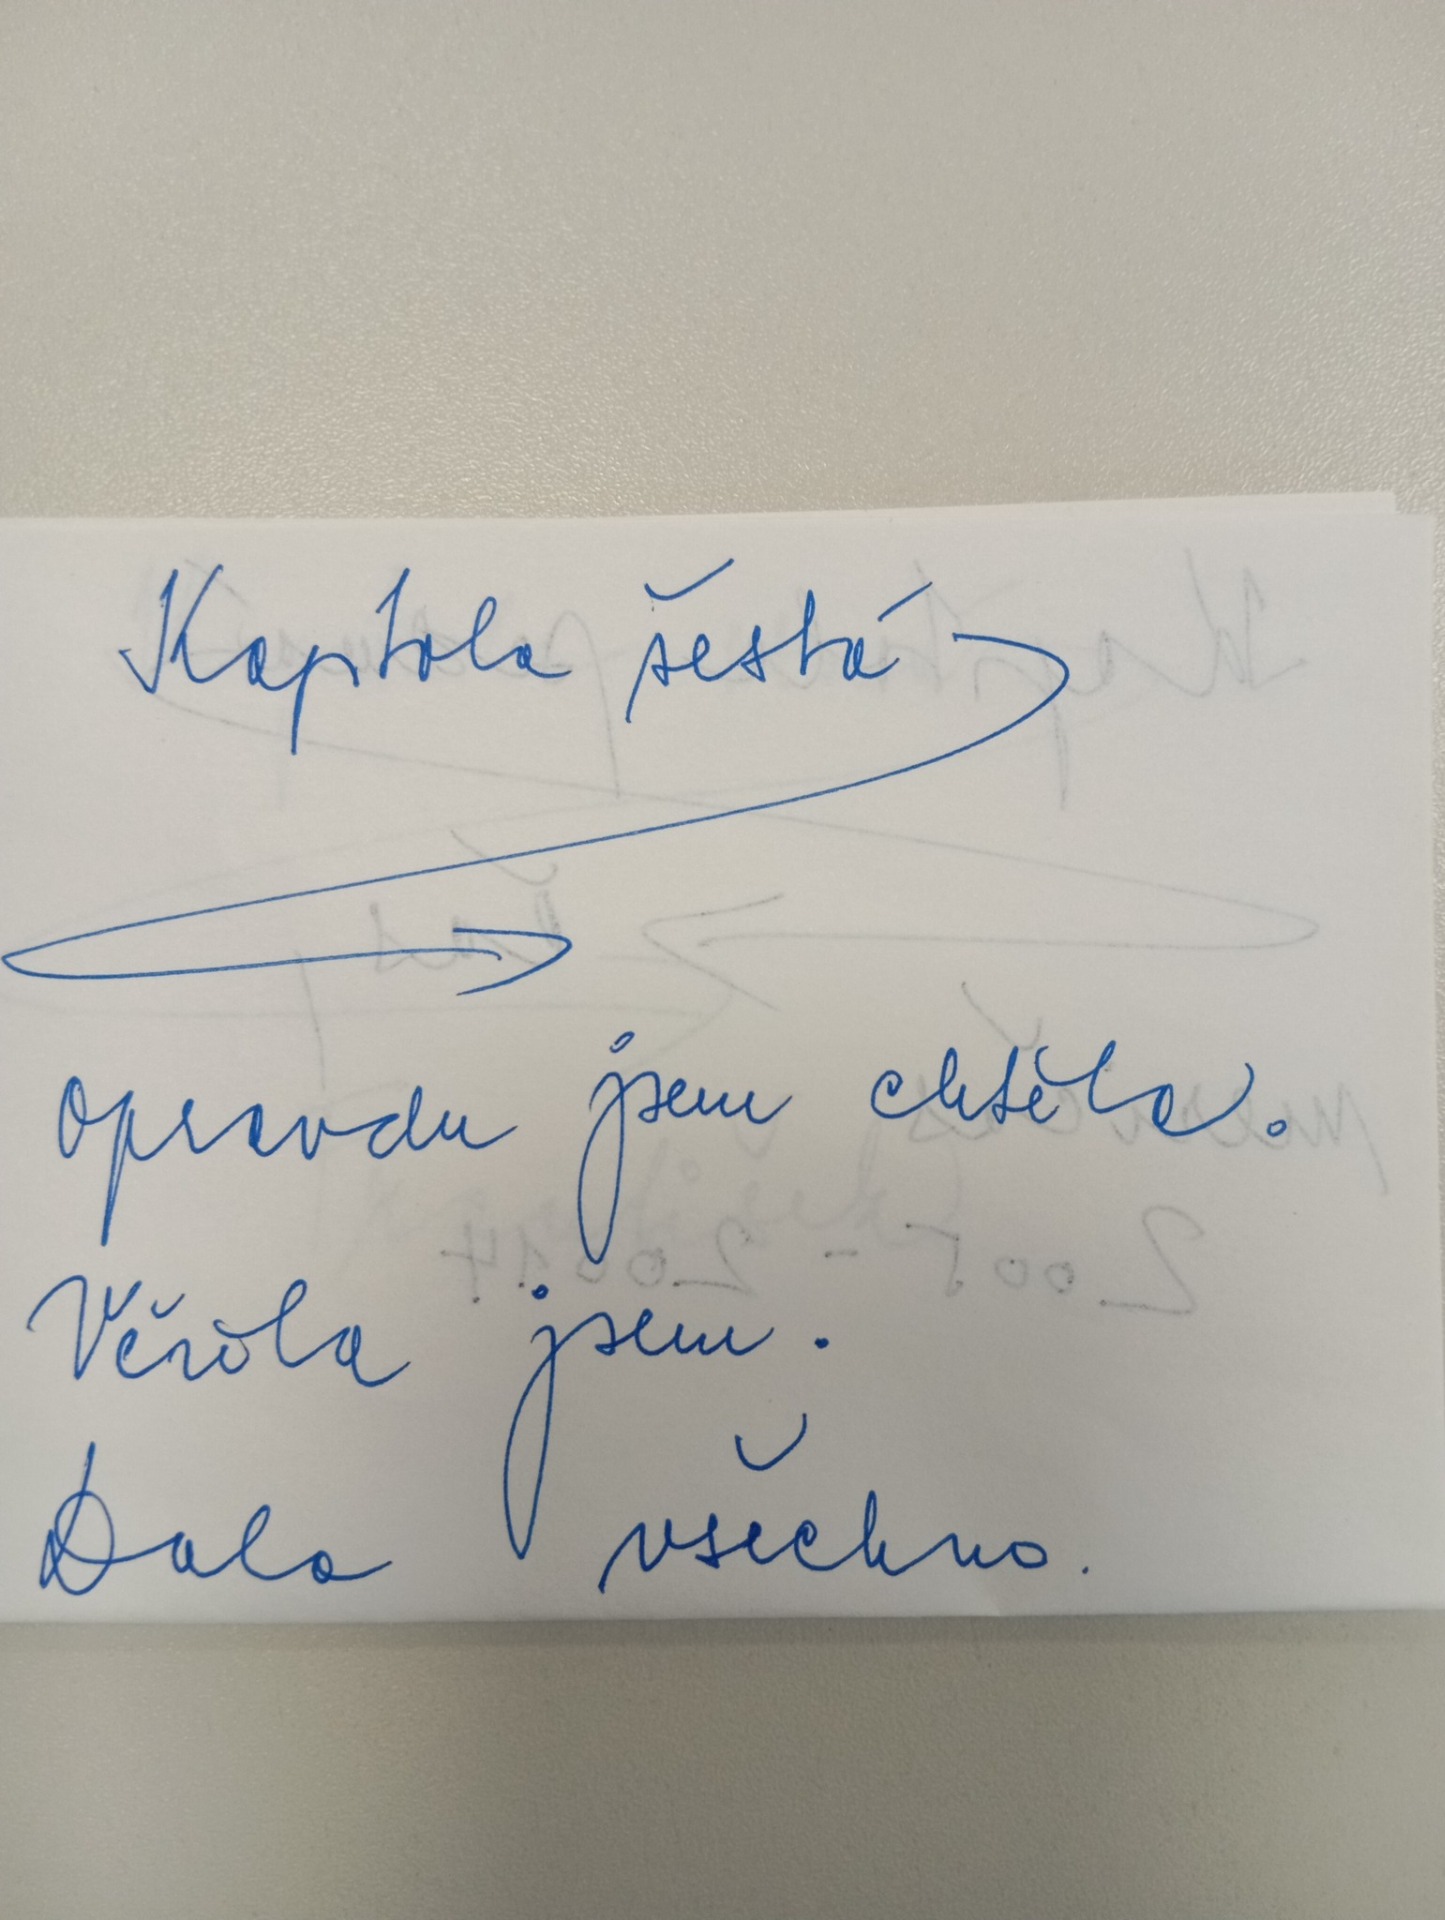 Kaptola šestá
opravdu jsem chtěla.
Věřila jsem.
Dala všechno.